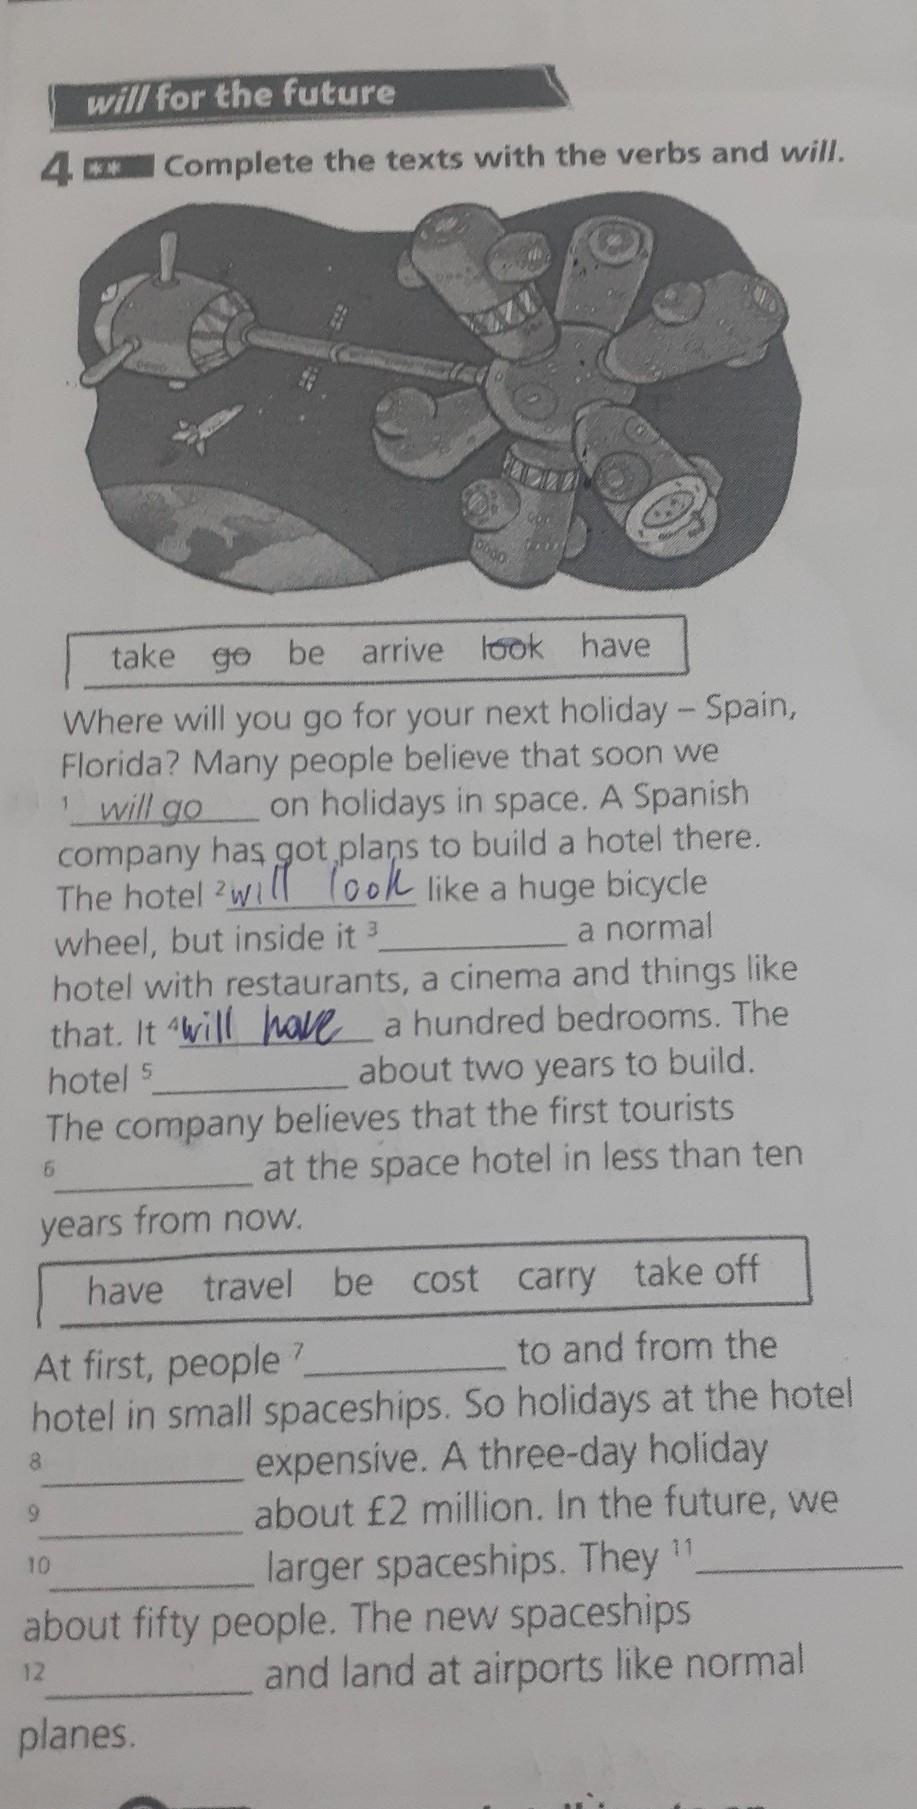 will for the future
4 ** Complete the texts with the verbs and will.
take go be arrive look have
Where will you go for your next holiday – Spain,
Florida? Many people believe that soon we
1 will go on holidays in space. A Spanish
company has got plans to build a hotel there.
The hotel 2 will look like a huge bicycle
wheel, but inside it 3 ____________ a normal
hotel with restaurants, a cinema and things like
that. It 4 will have a hundred bedrooms. The
hotel 5 ____________ about two years to build.
The company believes that the first tourists
6 ____________ at the space hotel in less than ten
years from now.
have travel be cost carry take off
At first, people 7 ____________ to and from the
hotel in small spaceships. So holidays at the hotel
8 ____________ expensive. A three-day holiday
9 ____________ about £2 million. In the future, we
10 ____________ larger spaceships. They 11 ____________
about fifty people. The new spaceships
12 ____________ and land at airports like normal
planes.